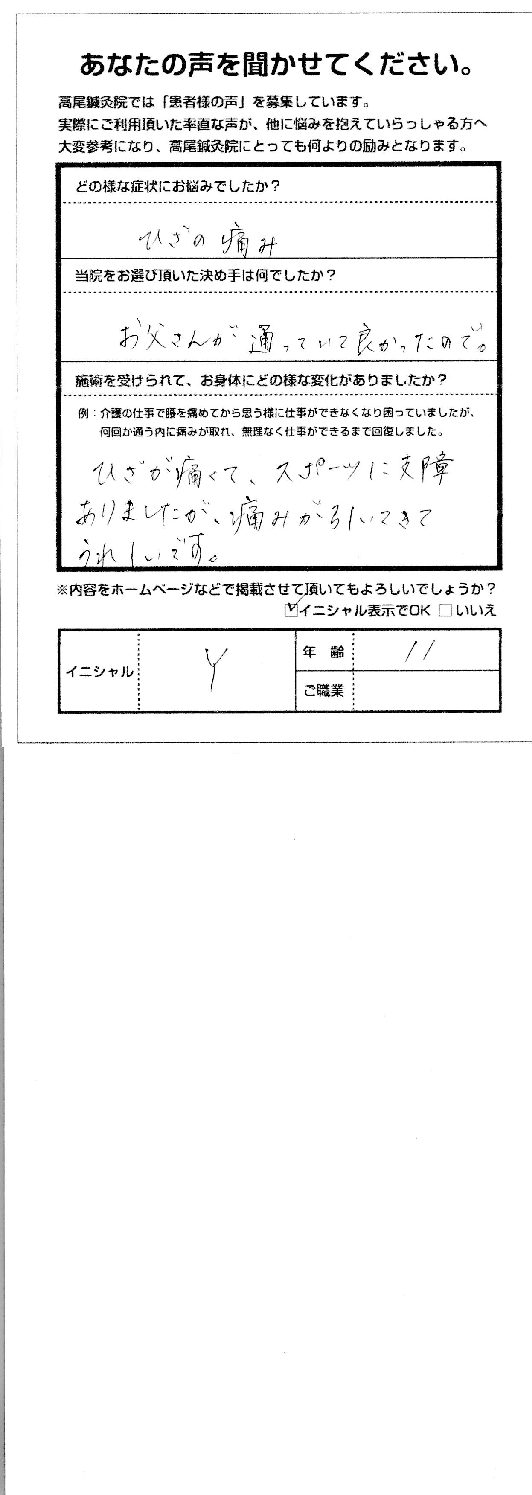 あなたの声を聞かせてください。
高尾鍼灸院では「患者様の声」を募集しています。
実際にご利用頂いた率直な声が、他に悩みを抱えていらっしゃる方へ
大変参考になり、高尾鍼灸院にとっても何よりの励みとなります。
どの様な症状にお悩みでしたか？
ひざの痛み
当院をお選び頂いた決め手は何でしたか？
お父さんが通っていて良かったので。
施術を受けられて、お身体にどの様な変化がありましたか？
例：介護の仕事で腰を痛めてから思う様に仕事ができなくなり困っていましたが、
何回か通う内に痛みが取れ、無理なく仕事ができるまで回復しました。
ひざが痛くて、スポーツに支障
ありましたが、痛みが引いてきて
うれしいです。
※内容をホームページなどで掲載させて頂いてもよろしいでしょうか？
☑イニシャル表示でOK □いいえ
イニシャル Y 年齢 11
ご職業